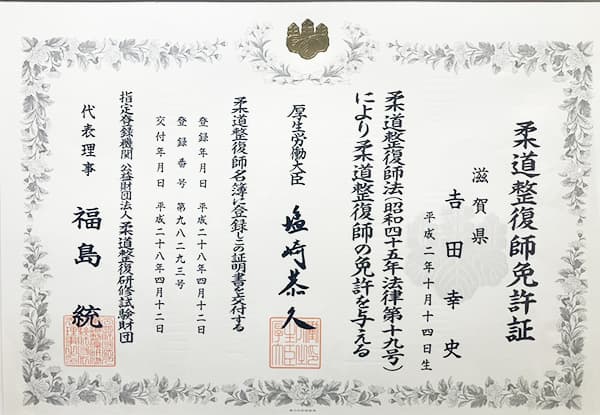 柔道整復師免許証
滋賀県
吉田幸史
平成二年十月十四日生
柔道整復師法(昭和四十五年法律第十九号)
により柔道整復師の免許を与える
厚生労働大臣 塩崎恭久
柔道整復師名簿に登録しこの証明書を交付する
登録年月日 平成二十八年四月十二日
登録番号 第九八二九三号
交付年月日 平成二十八年四月十二日
指定登録機関 公益財団法人 柔道整復研修試験財団
代表理事 福島統